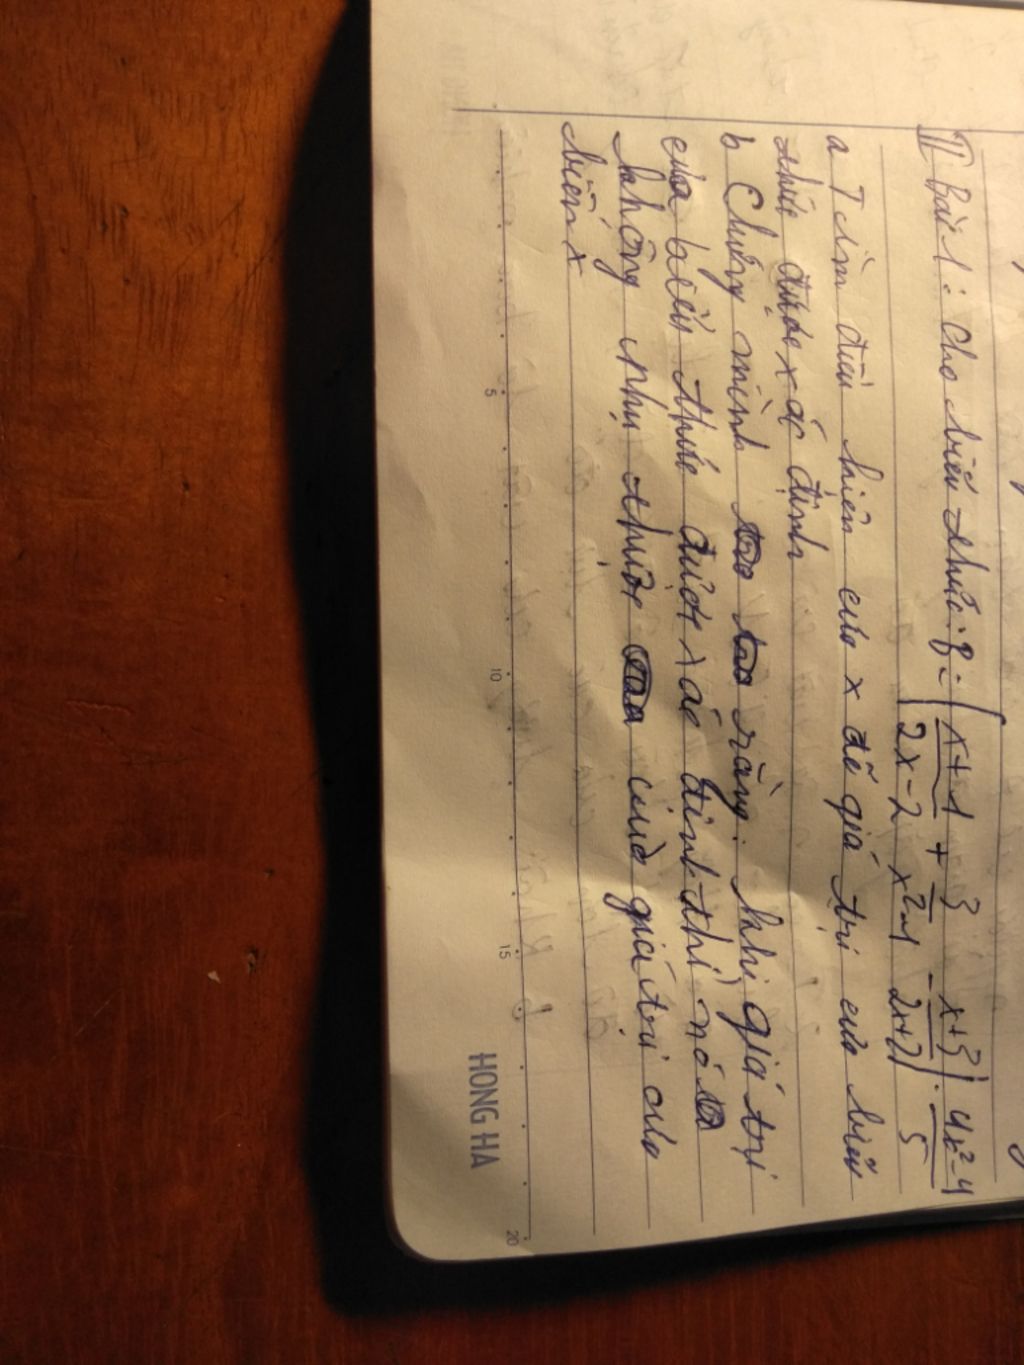 II Bài 1: Cho biểu thức: B = (x+1/2x-2 + 3/x²-1 - x+3/2x+2) . 4x²-4/5
a Tìm điều kiện của x để giá trị của biểu
thức được xác định
b Chứng minh rằng: khi giá trị
của biểu thức được xác định thì nó
không phụ thuộc của giá trị của
biến x
5 10 15 20
HONG HA